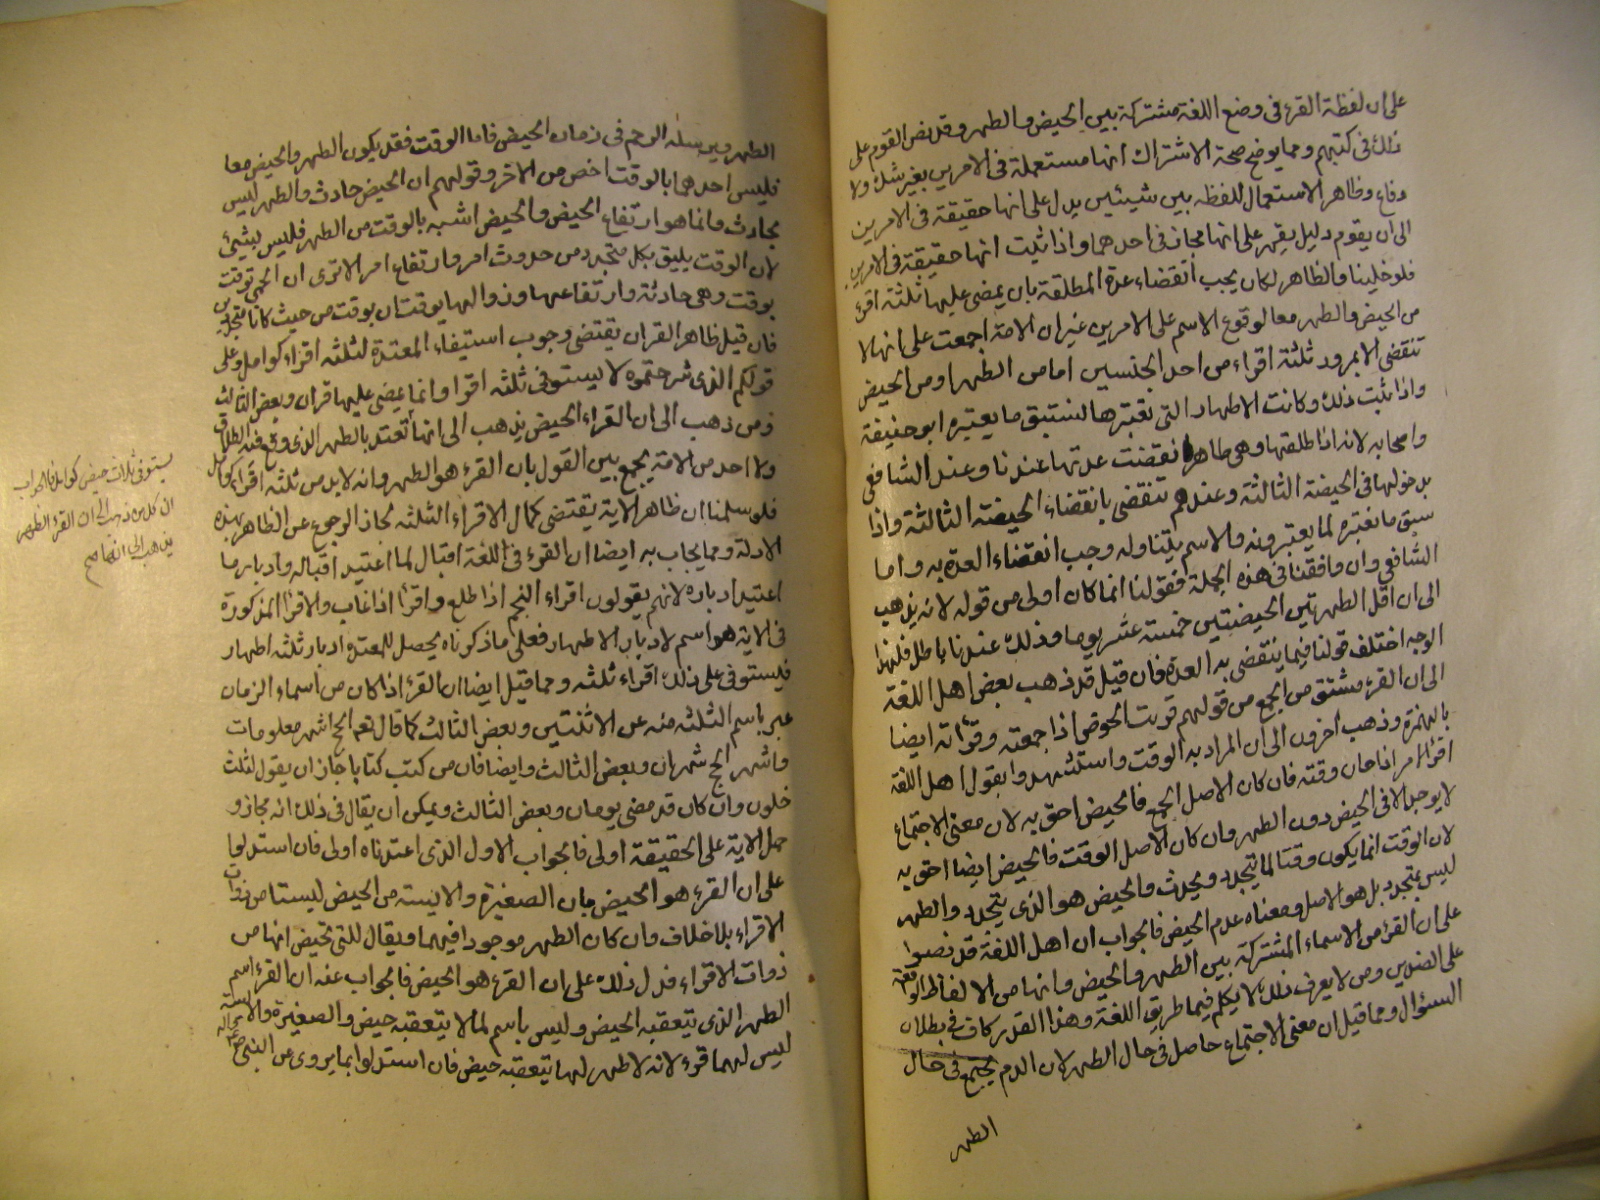 على ان لفظة القرء فى وضع اللغة مشتركة بين الحيض والطهر وقد نص القوم على
ذلك فى كتبهم ومما يوضح صحة الاشتراك انها مستعملة فى الامرين بغير شك ولا
دفاع وظاهر الاستعمال للفظه بين شيئين يدل على انها حقيقة فى الامرين
الى ان يقوم دليل يقهر على انها مجاز فى احدهما واذا ثبت انها حقيقة فى الامرين
فلو خلينا والظاهر لكان يجب انقضاء عدة المطلقة بان يمضى عليها ثلثة اقرء
من الحيض والطهر معا لوقوع الاسم على الامرين غير ان الامة اجمعت على انها لا
تنقضى الا بمرور ثلثة اقراء من احد الجنسين اما من الطهر او من الحيض
واذا ثبت ذلك وكانت الاطهار التى نعتبرها تسبق ما يعتبره ابو حنيفة
واصحابه لانه اذا طلقها وهى طاهر انقضت عدتها عندنا وعند الشافعى
بدخولها فى الحيضة الثالثة وعندهم تنقضى بانقضاء الحيضة الثالثة واذا
سبق ما نعتبره لما يعتبرونه والاسم يتناوله وجب انقضاء العدة به واما
الشافعى وان وافقنا فى هذه الجملة فقولنا انما كان اولى من قوله لانه يذهب
الى ان اقل الطهر بين الحيضتين خمسة عشر يوما وذلك عندنا باطل فلهذا
الوجه اختلف قولنا فيما ينقضى به العدة فان قيل قد ذهب بعض اهل اللغة
الى ان القرء مشتق من الجمع من قولهم قريت الحوض اذا جمعته وقرأته ايضا
بالهمزة وذهب اخرون الى ان المراد به الوقت واستشهدوا بقول اهل اللغة
اقرأ الامر اذا حان وقته فان كان الاصل الجمع فالحيض احق به لان معنى الاجتماع
لا يوجد الا فى الحيض دون الطهر وان كان الاصل الوقت فالحيض ايضا احق به
لان الوقت انما يكون وقتا لما يتجدد ويحدث والحيض هو الذى يتجدد والطهر
ليس بمتجدد بل هو الاصل ومعناه عدم الحيض فالجواب ان اهل اللغة قد نصوا
على ان القرء من الاسماء المشتركة بين الطهر والحيض وانها من الالفاظ الواقعة
على الضدين ومن لا يعرف ذلك لا يكلم فيما طريق اللغة وهذا القدر كاف فى بطلان
السؤال ومما قيل ان معنى الاجتماع حاصل فى حال الطهر لان الدم يجتمع فى حال
الطهر
الطهر ويرسله الرحم فى زمان الحيض فاما الوقت فقد يكون الطهر والحيض معا
فليس احدهما بالوقت اخص من الاخر وقولهم ان الحيض حادث والطهر ليس
بحادث وانما هو ارتفاع الحيض والحيض اشبه بالوقت من الطهر فليس بشيئ
لان الوقت يليق بكل متجدد من حدوث امر وارتفاع امر الا ترى ان الحمى توقت
بوقت وهى حادثة وارتفاعها وزوالها يوقتان بوقت من حيث كانا متجددين
فان قيل ظاهر القران يقتضى وجوب استيفاء المعتدة لثلثه اقراء كوامل وعلى
قولكم الذى شرحتموه لا يستوفى ثلثه اقرا وانما يمضى عليها قرءان وبعض الثالث
ومن ذهب الى ان القراء الحيض يذهب الى انها تعتد بالطهر الذى وقع فيه الطلاق
ولا احد من الامة يجمع بين القول بان القرء هو الطهر وانه لا بد من ثلثه اقراء كوامل
فلو سلمنا ان ظاهر الاية يقتضى كمال الاقراء الثلثه لجاز الرجوع عن الظاهر بهذه
الادلة ومما يجاب به ايضا ان القرء فى اللغة اقبال لما اعتيد اقباله وادبار ما
اعتيد ادباره لانهم يقولون اقراء النجم اذا طلع واقرأ اذا غاب والاقرا المذكورة
فى الاية هو اسم لادبار الاطهار فعلى ما ذكرناه يحصل للمعتدة ادبار ثلثه اطهار
فليستوفى على ذلك اقراء ثلثه ومما قيل ايضا ان القرء اذا كان من اسماء الزمان
عبر باسم الثلثه منه عن الاثنتين وبعض الثالث كما قال تعم الحج اشهر معلومات
واشهر الحج شهران وبعض الثالث وايضا فان من كتب كتابا جاز ان يقول لثلث
خلون وان كان قد مضى يومان وبعض الثالث ويمكن ان يقال فى ذلك انه مجاز و
حمل الاية على الحقيقة اولى فالجواب الاول الذى اعتدناه اولى فان استدلوا
على ان القرء هو الحيض بان الصغيرة والايسه من الحيض ليستا من ذوات
الاقراء بلا خلاف وان كان الطهر موجودا فيهما ويقال للتى تحيض انها من
ذوات الاقراء فدل ذلك على ان القرء هو الحيض فالجواب عنه ان القرء اسم
الطهر الذى يتعقبه الحيض وليس باسم لما لا يتعقبه حيض والصغيرة والايسة
ليس لهما قرء لانه لا طهر لهما يتعقبه حيض فان استدلوا بما يروى عن النبى
يستوفى ثلاث حيض كوامل فالجواب
ان كل من ذهب الى ان القرء الطهر
يذهب الى انها صح